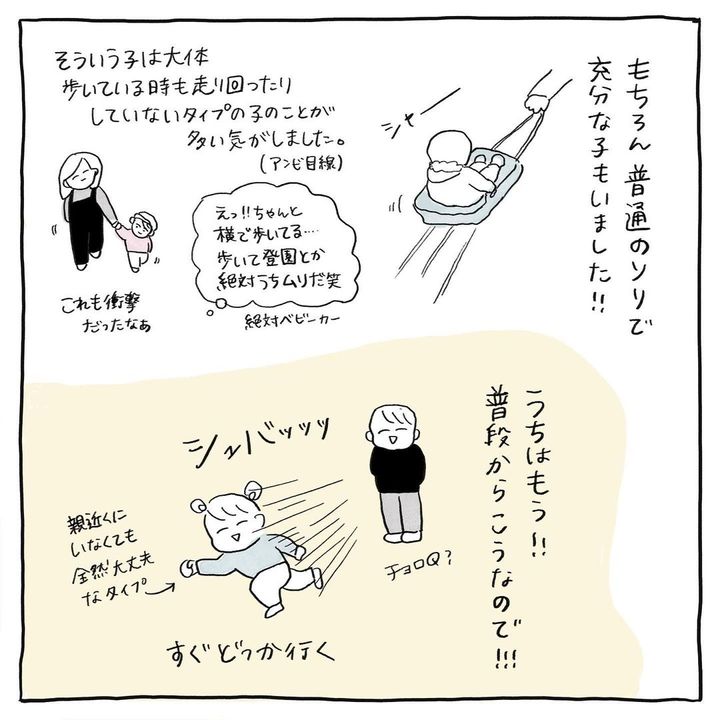 もちろん 普通のソリで
充分な子もいました!!
シャー
そういう子は大体
歩いている時も走り回ったり
していないタイプの子のことが
多い気がしました。
(アンビ目線)
えっ!!ちゃんと
横で歩いてる…
歩いて登園とか
絶対うちムリだ笑
絶対ベビーカー
これも衝撃
だったなぁ
うちはもう!!
普段からこうなので!!!
シュバッッッ
チョロQ?
親近くに
いなくても
全然大丈夫
なタイプ
すぐどっか行く